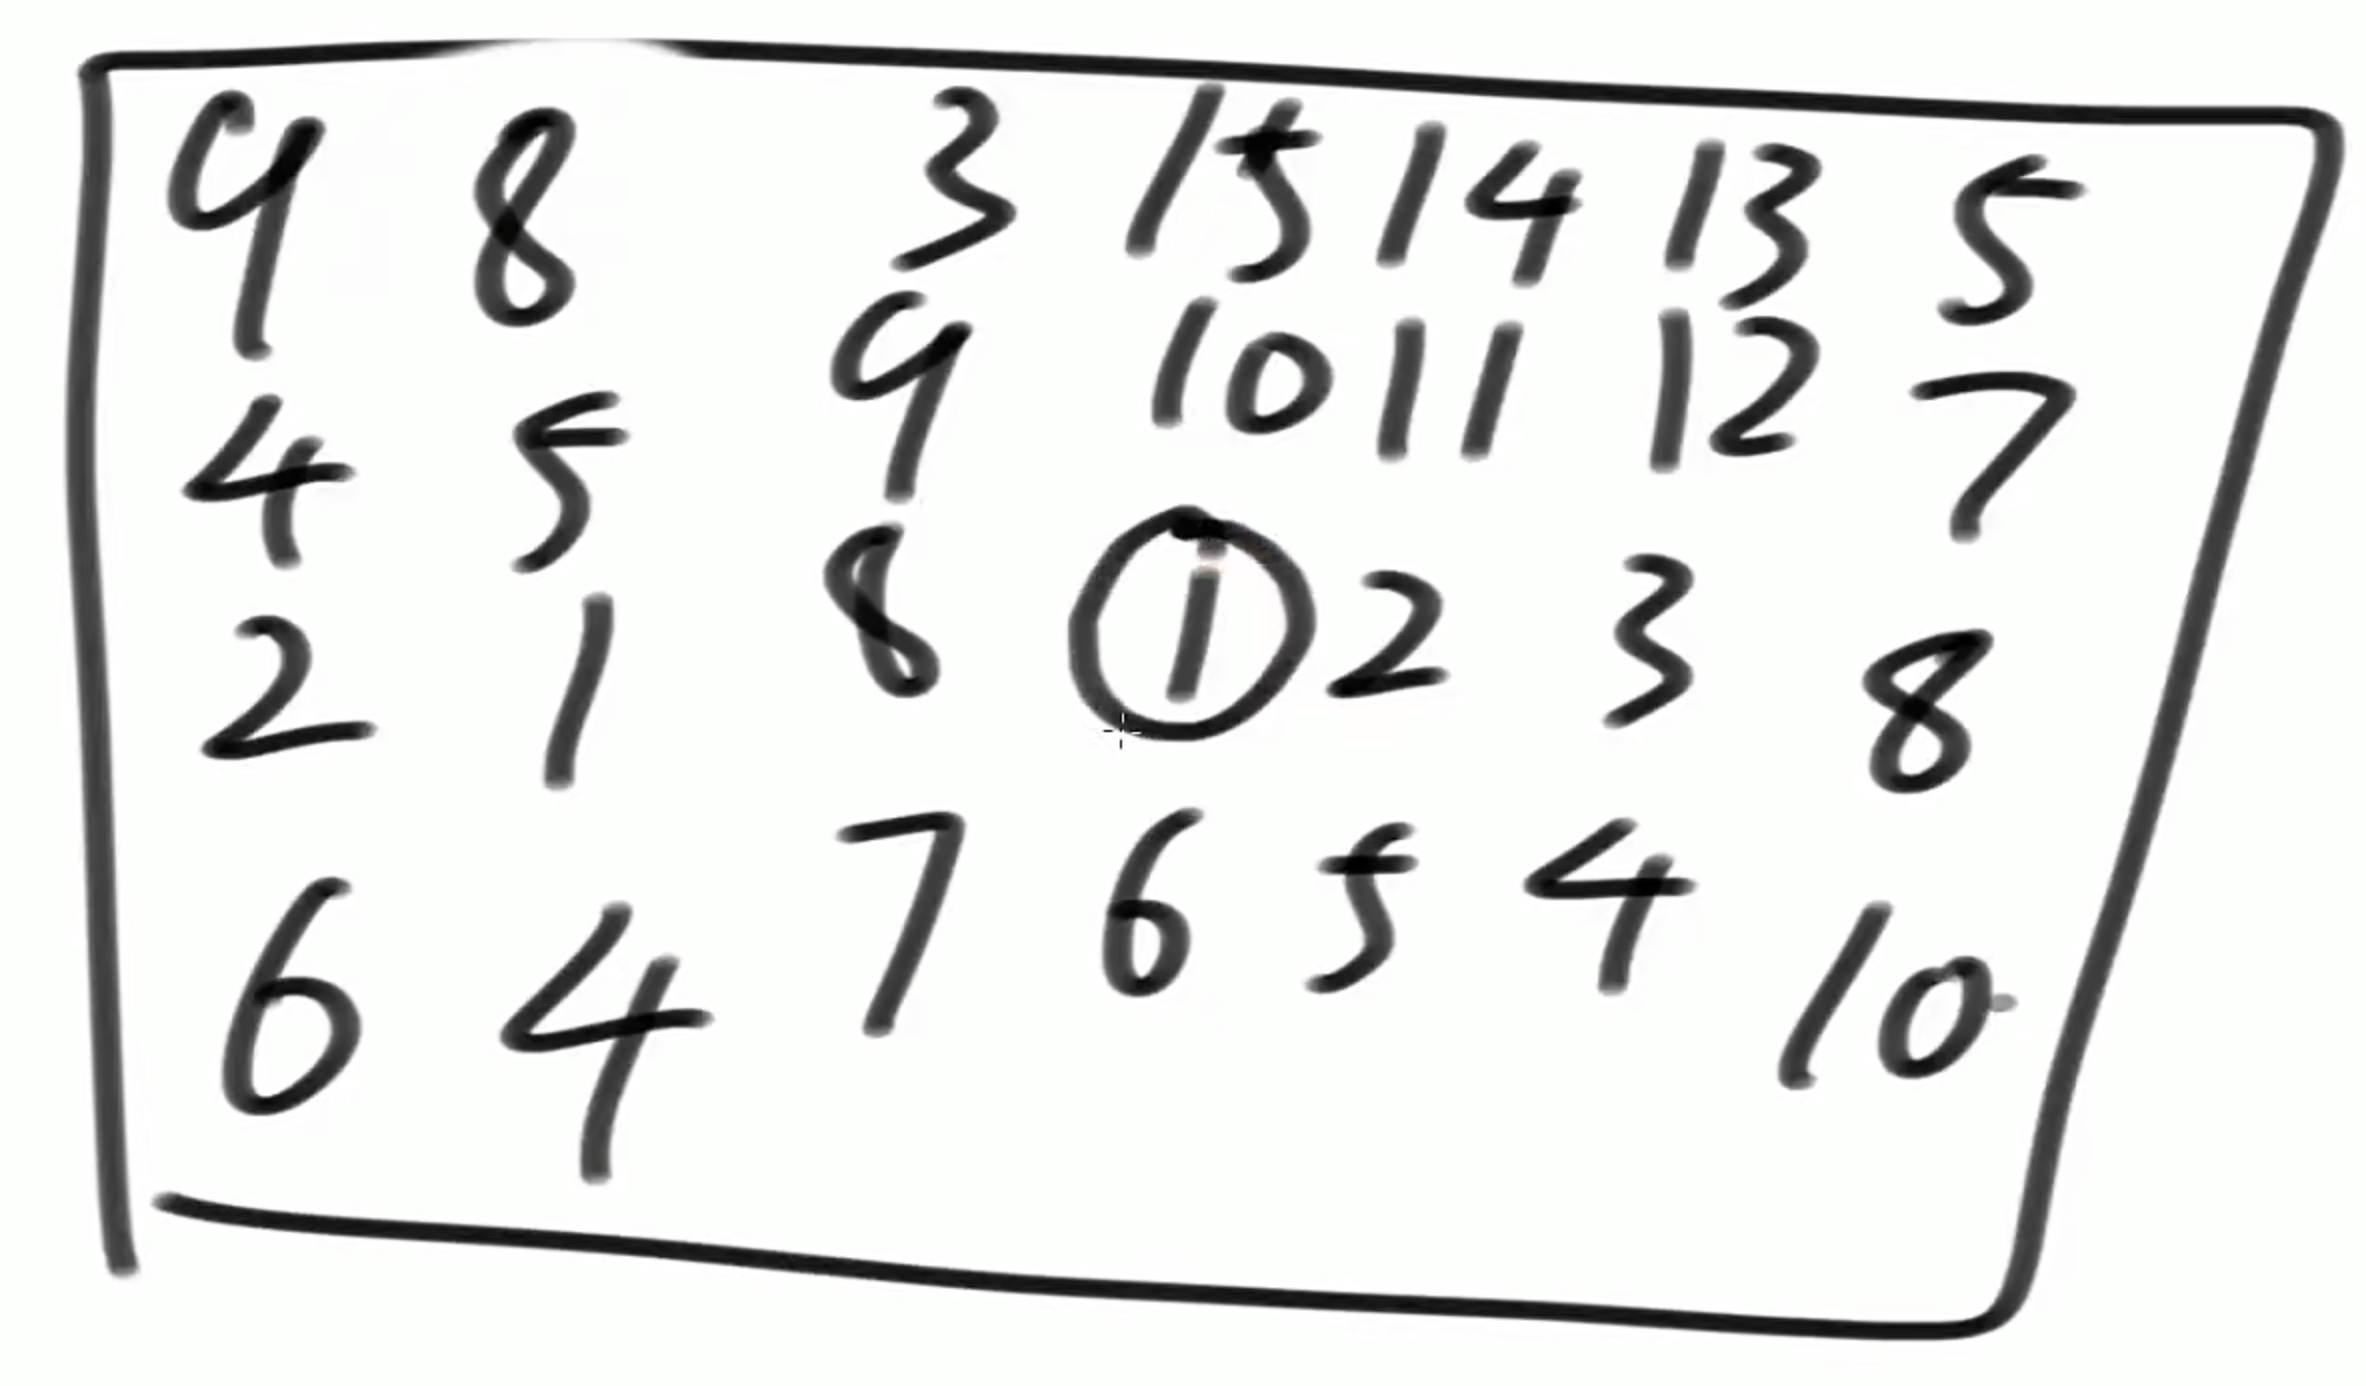 9 8 3 15 14 13 5
4 5 9 10 11 12 7
2 1 8 1 2 3 8
6 4 7 6 5 4 10